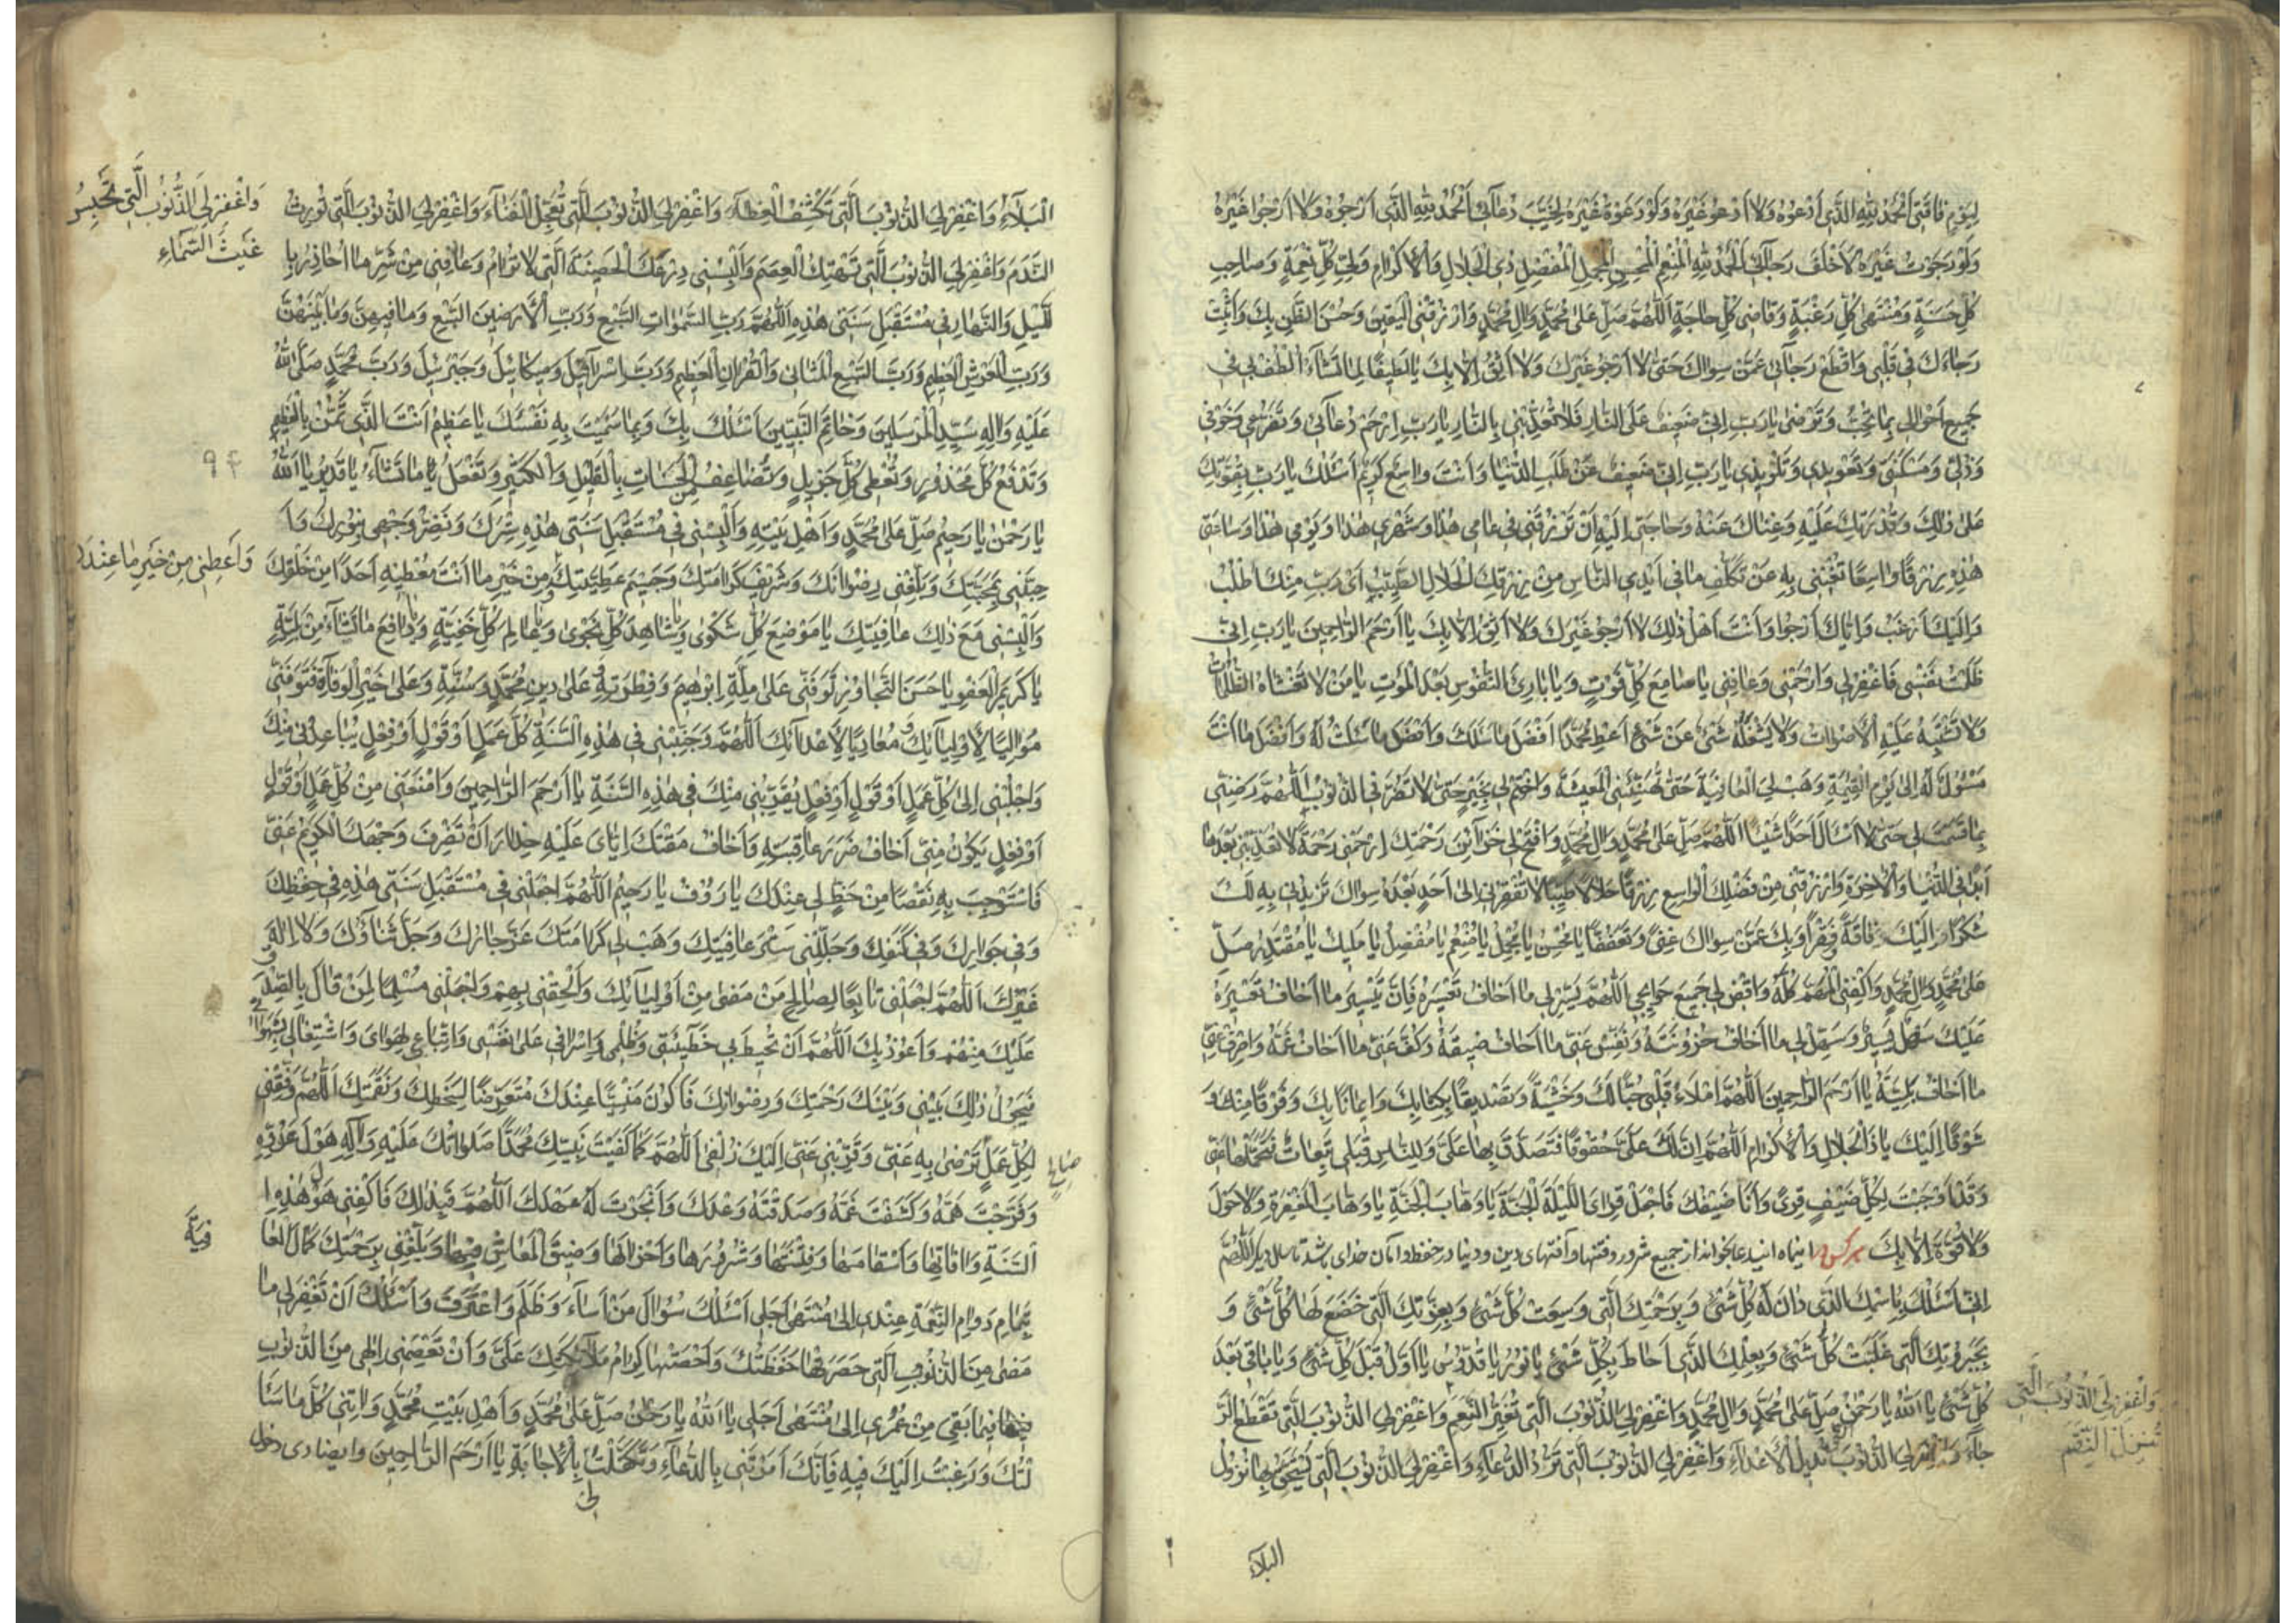 لِيَوْمِ فَاقَتِى اَلْحَمْدُ لِلّٰهِ الَّذى اَدْعُوهُ وَلا اَدْعُو غَيْرَهُ وَلَوْ دَعَوْتُ غَيْرَهُ لَخَيَّبَ دُعآئى اَلْحَمْدُ لِلّٰهِ الَّذى اَرْجُوهُ وَلا اَرْجُوا غَيْرَهُ
وَلَوْ رَجَوْتُ غَيْرَهُ لَاَخْلَفَ رَجآئى اَلْحَمْدُ لِلّٰهِ الْمُنْعِمِ الْمُحْسِنِ الْمُجْمِلِ الْمُفْضِلِ ذِى الْجَلالِ وَالْاِكْرامِ وَلِىِّ كُلِّ نِعْمَةٍ وَصاحِبِ
كُلِّ حَسَنَةٍ وَمُنْتَهى كُلِّ رَغْبَةٍ وَقاضى كُلِّ حاجَةٍ اَللّٰهُمَّ صَلِّ عَلى مُحَمَّدٍ وَالِ مُحَمَّدٍ وَارْزُقْنِى الْيَقينَ وَحُسْنَ الظَّنِّ بِكَ وَاَثْبِتْ
رَجاءَكَ فى قَلْبى وَاقْطَعْ رَجآئى عَمَّنْ سِواكَ حَتّى لا اَرْجُوَ غَيْرَكَ وَلا اَثِقَ اِلّا بِكَ يا لَطيفًا لِما تَشآءُ اُلْطُفْ لى فى
جَميعِ اَحْوالى بِما تُحِبُّ وَتَرْضى يا رَبِّ اِنّى ضَعيفٌ عَلَى النّارِ فَلا تُعَذِّبْنى بِالنّارِ يا رَبِّ اِرْحَمْ دُعآئى وَتَضَرُّعى وَخَوْفى
وَذُلّى وَمَسْكَنَتى وَتَعْويذى وَتَلْويذى يا رَبِّ اِنّى ضَعيفٌ عَنْ طَلَبِ الدُّنْيا وَاَنْتَ واسِعٌ كَريمٌ اَسْئَلُكَ يا رَبِّ بِقُوَّتِكَ
عَلى ذٰلِكَ وَقُدْرَتِكَ عَلَيْهِ وَغِناكَ عَنْهُ وَحاجَتى اِلَيْهِ اَنْ تَرْزُقَنى فى عامى هٰذا وَشَهْرى هٰذا وَيَوْمى هٰذا وَساعَتى
هٰذِهِ رِزْقًا واسِعًا تُغْنينى بِهِ عَنْ تَكَلُّفِ ما فى اَيْدِى النّاسِ مِنْ رِزْقِكَ الْحَلالِ الطَّيِّبِ اَىْ رَبِّ مِنْكَ اَطْلُبُ
وَاِلَيْكَ اَرْغَبُ وَاِيّاكَ اَرْجُوا وَاَنْتَ اَهْلُ ذٰلِكَ لا اَرْجُو غَيْرَكَ وَلا اَثِقُ اِلّا بِكَ يا اَرْحَمَ الرّاحِمينَ يا رَبِّ اِنّى
ظَلَمْتُ نَفْسى فَاغْفِرْلى وَارْحَمْنى وَعافِنى يا سامِعَ كُلِّ صَوْتٍ وَيا بارِئَ النُّفُوسِ بَعْدَ الْمَوْتِ يا مَنْ لا تَغْشاهُ الظُّلُماتُ
وَلا تَشْتَبِهُ عَلَيْهِ الْاَصْواتُ وَلا يَشْغَلُهُ شَىْءٌ عَنْ شَىْءٍ اَعْطِ مُحَمَّدًا اَفْضَلَ ما سَئَلَكَ وَاَفْضَلَ ما سُئِلْتَ لَهُ وَاَفْضَلَ ما اَنْتَ
مَسْئُولٌ لَهُ اِلى يَوْمِ الْقِيٰمَةِ وَهَبْ لِىَ الْعافِيَةَ حَتّى تُهَنِّئَنِى الْمَعيشَةَ وَاخْتِمْ لى بِخَيْرٍ حَتّى لا تَضُرَّنِى الذُّنُوبُ اَللّٰهُمَّ رَضِّنى
بِما قَسَمْتَ لى حَتّى لا اَسْاَلَ اَحَدًا شَيْئًا اَللّٰهُمَّ صَلِّ عَلى مُحَمَّدٍ وَالِ مُحَمَّدٍ وَافْتَحْ لى خَزآئِنَ رَحْمَتِكَ اِرْحَمْنى رَحْمَةً لا تُعَذِّبُنى بَعْدَها
اَبَدًا فِى الدُّنْيا وَالْاٰخِرَةِ وَارْزُقْنى مِنْ فَضْلِكَ الْواسِعِ رِزْقًا حَلالًا طَيِّبًا لا تُفْقِرُنى اِلى اَحَدٍ بَعْدَهُ سِواكَ تَزيدُنى بِهِ لَكَ
شُكْرًا وَاِلَيْكَ فاقَةً وَفَقْرًا وَبِكَ عَمَّنْ سِواكَ غِنًى وَتَعَفُّفًا يا مُحْسِنُ يا مُجْمِلُ يا مُنْعِمُ يا مُفْضِلُ يا مَليكُ يا مُقْتَدِرُ صَلِّ
عَلى مُحَمَّدٍ وَالِ مُحَمَّدٍ وَاكْفِنِى الْمُهِمَّ كُلَّهُ وَاقْضِ لى جَميعَ حَوآئِجى اَللّٰهُمَّ يَسِّرْ لى ما اَخافُ تَعْسيرَهُ فَاِنَّ تَيْسيرَ ما اَخافُ تَعْسيرَهُ
عَلَيْكَ سَهْلٌ يَسيرٌ وَسَهِّلْ لى ما اَخافُ حُزُونَتَهُ وَنَفِّسْ عَنّى ما اَخافُ ضيقَهُ وَكُفَّ عَنّى ما اَخافُ غَمَّهُ وَاصْرِفْ عَنّى
ما اَخافُ بَلِيَّتَهُ يا اَرْحَمَ الرّاحِمينَ اَللّٰهُمَّ امْلَاءْ قَلْبى حُبًّا لَكَ وَخَشْيَةً وَتَصْديقًا بِكِتابِكَ وَايمانًا بِكَ وَفَرَقًا مِنْكَ وَ
شَوْقًا اِلَيْكَ يا ذَا الْجَلالِ وَالْاِكْرامِ اَللّٰهُمَّ اِنَّ لَكَ عَلَىَّ حُقُوقًا فَتَصَدَّقْ بِها عَلَىَّ وَلِلنّاسِ قِبَلى تَبِعاتٌ فَتَحَمَّلْها عَنّى
وَقَدْ اَوْجَبْتَ لِكُلِّ ضَيْفٍ قِرًى وَاَنَا ضَيْفُكَ فَاجْعَلْ قِراىَ اللَّيْلَةَ الْجَنَّةَ يا وَهّابَ الْجَنَّةِ يا وَهّابَ الْمَغْفِرَةِ وَلا حَوْلَ
وَلا قُوَّةَ اِلّا بِكَ هر كس در اينماه ايندعا بخواند از جميع شرور و فتنها و آفتهاى دين و دنيا در حفظ و امان خداى باشد تا سال ديگر اَللّٰهُمَّ
اِنّى اَسْئَلُكَ بِاسْمِكَ الَّذى دانَ لَهُ كُلُّ شَىْءٍ وَبِرَحْمَتِكَ الَّتى وَسِعَتْ كُلَّ شَىْءٍ وَبِعِزَّتِكَ الَّتى خَضَعَ لَها كُلُّ شَىْءٍ وَ
بِجَبَرُوتِكَ الَّتى غَلَبَتْ كُلَّ شَىْءٍ وَبِعِلْمِكَ الَّذى اَحاطَ بِكُلِّ شَىْءٍ يا نُورُ يا قُدُّوسُ يا اَوَّلُ قَبْلَ كُلِّ شَىْءٍ وَيا باقى بَعْدَ
كُلِّ شَىْءٍ يا اَللّٰهُ يا رَحْمٰنُ صَلِّ عَلى مُحَمَّدٍ وَالِ مُحَمَّدٍ وَاغْفِرْلِىَ الذُّنُوبَ الَّتى تُغَيِّرُ النِّعَمَ وَاغْفِرْلِىَ الذُّنُوبَ الَّتى تَقْطَعُ الرَّ
جآءَ وَاغْفِرْلِىَ الذُّنُوبَ الَّتى تُديلُ الْاَعْدآءَ وَاغْفِرْلِىَ الذُّنُوبَ الَّتى تَرُدُّ الدُّعآءَ وَاغْفِرْلِىَ الذُّنُوبَ الَّتى يُسْتَحَقُّ بِها نُزُولُ
وَاغْفِرْلِىَ الذُّنُوبَ الَّتى
تُنْزِلُ النِّقَمَ
البلآء
الْبَلآءِ وَاغْفِرْلِىَ الذُّنُوبَ الَّتى تَكْشِفُ الْغِطآءَ وَاغْفِرْلِىَ الذُّنُوبَ الَّتى تُعَجِّلُ الْفَنآءَ وَاغْفِرْلِىَ الذُّنُوبَ الَّتى تُورِثُ
النَّدَمَ وَاغْفِرْلِىَ الذُّنُوبَ الَّتى تَهْتِكُ الْعِصَمَ وَاَلْبِسْنى دِرْعَكَ الْحَصينَةَ الَّتى لا تُرامُ وَعافِنى مِنْ شَرِّ ما اُحاذِرُ بِا
للَّيْلِ وَالنَّهارِ فى مُسْتَقْبَلِ سَنَتى هٰذِهِ اَللّٰهُمَّ رَبَّ السَّمٰواتِ السَّبْعِ وَرَبَّ الْاَرَضينَ السَّبْعِ وَما فيهِنَّ وَما بَيْنَهُنَّ
وَرَبَّ الْعَرْشِ الْعَظيمِ وَرَبَّ السَّبْعِ الْمَثانى وَالْقُرْانِ الْعَظيمِ وَرَبَّ اِسْرافيلَ وَميكائيلَ وَجَبْرَئيلَ وَرَبَّ مُحَمَّدٍ صَلَّى اللّٰهُ
عَلَيْهِ وَالِهِ سَيِّدِ الْمُرْسَلينَ وَخاتَمِ النَّبِيّينَ اَسْئَلُكَ بِكَ وَبِما سَمَّيْتَ بِهِ نَفْسَكَ يا عَظيمُ اَنْتَ الَّذى تَمُنُّ بِالْعَظيمِ
وَتَدْفَعُ كُلَّ مَحْذُورٍ وَتُعْطى كُلَّ جَزيلٍ وَتُضاعِفُ مِنَ الْحَسَناتِ بِالْقَليلِ وَالْكَثيرِ وَتَفْعَلُ ما تَشآءُ يا قَديرُ يا اَللّٰهُ
يا رَحْمٰنُ يا رَحيمُ صَلِّ عَلى مُحَمَّدٍ وَاَهْلِ بَيْتِهِ وَاَلْبِسْنى فى مُسْتَقْبَلِ سَنَتى هٰذِهِ سِتْرَكَ وَنَضِّرْ وَجْهى بِنُورِكَ وَاَ
حِبَّنى بِمَحَبَّتِكَ وَبَلِّغْنى رِضْوانَكَ وَشَريفَ كَرامَتِكَ وَجَسيمَ عَطِيَّتِكَ مِنْ خَيْرِ ما اَنْتَ مُعْطيهِ اَحَدًا مِنْ خَلْقِكَ
وَاَلْبِسْنى مَعَ ذٰلِكَ عافِيَتَكَ يا مَوْضِعَ كُلِّ شَكْوى وَيا شاهِدَ كُلِّ نَجْوى وَيا عالِمَ كُلِّ خَفِيَّةٍ وَيا دافِعَ ما تَشآءُ مِنْ بَلِيَّةٍ
يا كَريمَ الْعَفْوِ يا حَسَنَ التَّجاوُزِ تَوَفَّنى عَلى مِلَّةِ اِبْرٰهيمَ وَفِطْرَتِهِ وَعَلى دينِ مُحَمَّدٍ وَسُنَّتِهِ وَعَلى خَيْرِ الْوَفاةِ فَتَوَفَّنى
مُوالِيًا لِاَوْلِيآئِكَ وَمُعادِيًا لِاَعْدآئِكَ اَللّٰهُمَّ وَجَنِّبْنى فى هٰذِهِ السَّنَةِ كُلَّ عَمَلٍ اَوْ قَوْلٍ اَوْ فِعْلٍ يُباعِدُنى مِنْكَ
وَاجْلِبْنى اِلى كُلِّ عَمَلٍ اَوْ قَوْلٍ اَوْ فِعْلٍ يُقَرِّبُنى مِنْكَ فى هٰذِهِ السَّنَةِ يا اَرْحَمَ الرّاحِمينَ وَامْنَعْنى مِنْ كُلِّ عَمَلٍ اَوْ قَوْلٍ
اَوْ فِعْلٍ يَكُونُ مِنّى اَخافُ ضَرَرَ عاقِبَتِهِ وَاَخافُ مَقْتَكَ اِيّاىَ عَلَيْهِ حِذارَ اَنْ تَصْرِفَ وَجْهَكَ الْكَريمَ عَنّى
فَاَسْتَوْجِبَ بِهِ نَقْصًا مِنْ حَظٍّ لى عِنْدَكَ يا رَؤُفُ يا رَحيمُ اَللّٰهُمَّ اجْعَلْنى فى مُسْتَقْبَلِ سَنَتى هٰذِهِ فى حِفْظِكَ
وَفى جِوارِكَ وَفى كَنَفِكَ وَجَلِّلْنى سِتْرَ عافِيَتِكَ وَهَبْ لى كَرامَتَكَ عَزَّ جارُكَ وَجَلَّ ثَناؤُكَ وَلا اِلٰهَ
غَيْرُكَ اَللّٰهُمَّ اجْعَلْنى تابِعًا لِصالِحِ مَنْ مَضى مِنْ اَوْلِيآئِكَ وَاَلْحِقْنى بِهِمْ وَاجْعَلْنى مُسْلِمًا لِمَنْ قالَ بِالصِّدْقِ
عَلَيْكَ مِنْهُمْ وَاَعُوذُ بِكَ اَللّٰهُمَّ اَنْ تُحيطَ بى خَطيئَتى وَظُلْمى وَاِسْرافى عَلى نَفْسى وَاتِّباعى لِهَواىَ وَاشْتِغالى بِشَهَواتى
فَيَحُولُ ذٰلِكَ بَيْنى وَبَيْنَ رَحْمَتِكَ وَرِضْوانِكَ فَاَكُونَ مَنْسِيًّا عِنْدَكَ مُتَعَرِّضًا لِسَخَطِكَ وَنِقْمَتِكَ اَللّٰهُمَّ وَفِّقْنى
لِكُلِّ عَمَلٍ تَرْضى بِهِ عَنّى وَقَرِّبْنى اِلَيْكَ زُلْفى اَللّٰهُمَّ كَما كَفَيْتَ نَبِيَّكَ مُحَمَّدًا صَلَواتُكَ عَلَيْهِ وَالِهِ هَوْلَ عَدُوِّهِ
وَفَرَّجْتَ هَمَّهُ وَكَشَفْتَ غَمَّهُ وَصَدَقْتَهُ وَعْدَكَ وَاَنْجَزْتَ لَهُ عَهْدَكَ اَللّٰهُمَّ فَبِذٰلِكَ فَاكْفِنى هَوْلَ هٰذِهِ ا
لسَّنَةِ وَافاتِها وَاَسْقامَها وَفِتْنَتَها وَشُرُورَها وَاَحْزانَها وَضيقَ الْمَعاشِ فيها وَبَلِّغْنى بِرَحْمَتِكَ كَمالَ الْعا
بِتَمامِ دَوامِ النِّعْمَةِ عِنْدى اِلى مُنْتَهى اَجَلى اَسْئَلُكَ سُؤالَ مَنْ اَسآءَ وَظَلَمَ وَاعْتَرَفَ وَاَسْئَلُكَ اَنْ تَغْفِرَ لى ما
مَضى مِنَ الذُّنُوبِ الَّتى حَصَرَتْها حَفَظَتُكَ وَاَحْصَتْها كِرامُ مَلآئِكَتِكَ عَلَىَّ وَاَنْ تَعْصِمَنى اِلٰهى مِنَ الذُّنُوبِ
فيما بَقِىَ مِنْ عُمُرى اِلى مُنْتَهى اَجَلى يا اَللّٰهُ يا رَحْمٰنُ صَلِّ عَلى مُحَمَّدٍ وَاَهْلِ بَيْتِ مُحَمَّدٍ وَاتِنى كُلَّ ما سَئَا
لْتُكَ وَرَغِبْتُ اِلَيْكَ فيهِ فَاِنَّكَ اَمَرْتَنى بِالدُّعآءِ وَتَكَفَّلْتَ لى بِالْاِجابَةِ يا اَرْحَمَ الرّاحِمينَ وايضا دى دخول
وَاغْفِرْلِىَ الذُّنُوبَ الَّتى تَحْبِسُ
غَيْثَ السَّمآءِ
۹۴
وَاَعْطِنى مِنْ خَيْرِ ما عِنْدَكَ
صالح
فِيَةِ